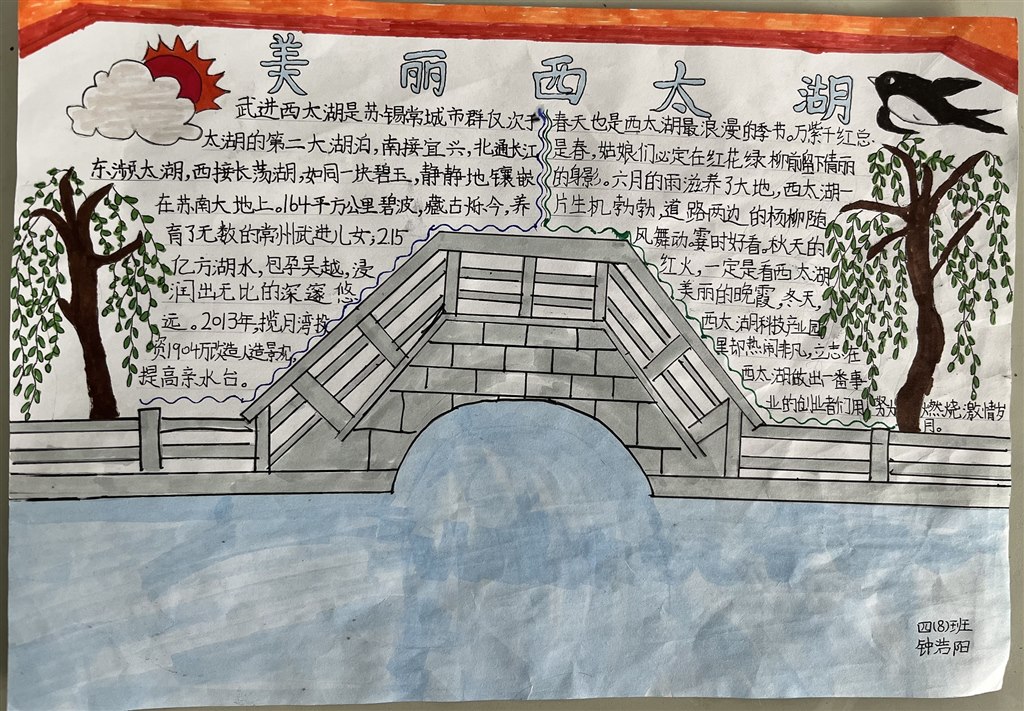 美丽西太湖
武进西太湖是苏锡常城市群仅次于
太湖的第二大湖泊，南接宜兴，北通长江
东濒太湖，西接长荡湖，如同一块碧玉，静静地镶嵌
在苏南大地上。164平方公里碧波，藏古烁今，养
育了无数的常州武进儿女；2.15
亿方湖水，包孕吴越，浸
润出无比的深邃悠
远。2013年，揽月湾投
资1904万改造人造景观，
提高亲水台。
春天也是西太湖最浪漫的季节。万紫千红总
是春，姑娘们必定在红花绿柳前留下倩丽
的身影。六月的雨滋养了大地，西太湖一
片生机勃勃，道路两边的杨柳随
风舞动。霎时好看。秋天的
红火，一定是看西太湖
美丽的晚霞，冬天，
西太湖科技产业园
里却热闹非凡，立志在
西太湖做出一番事
业的创业者们用 燃烧激情岁
月。
四(8)班
钟浩阳